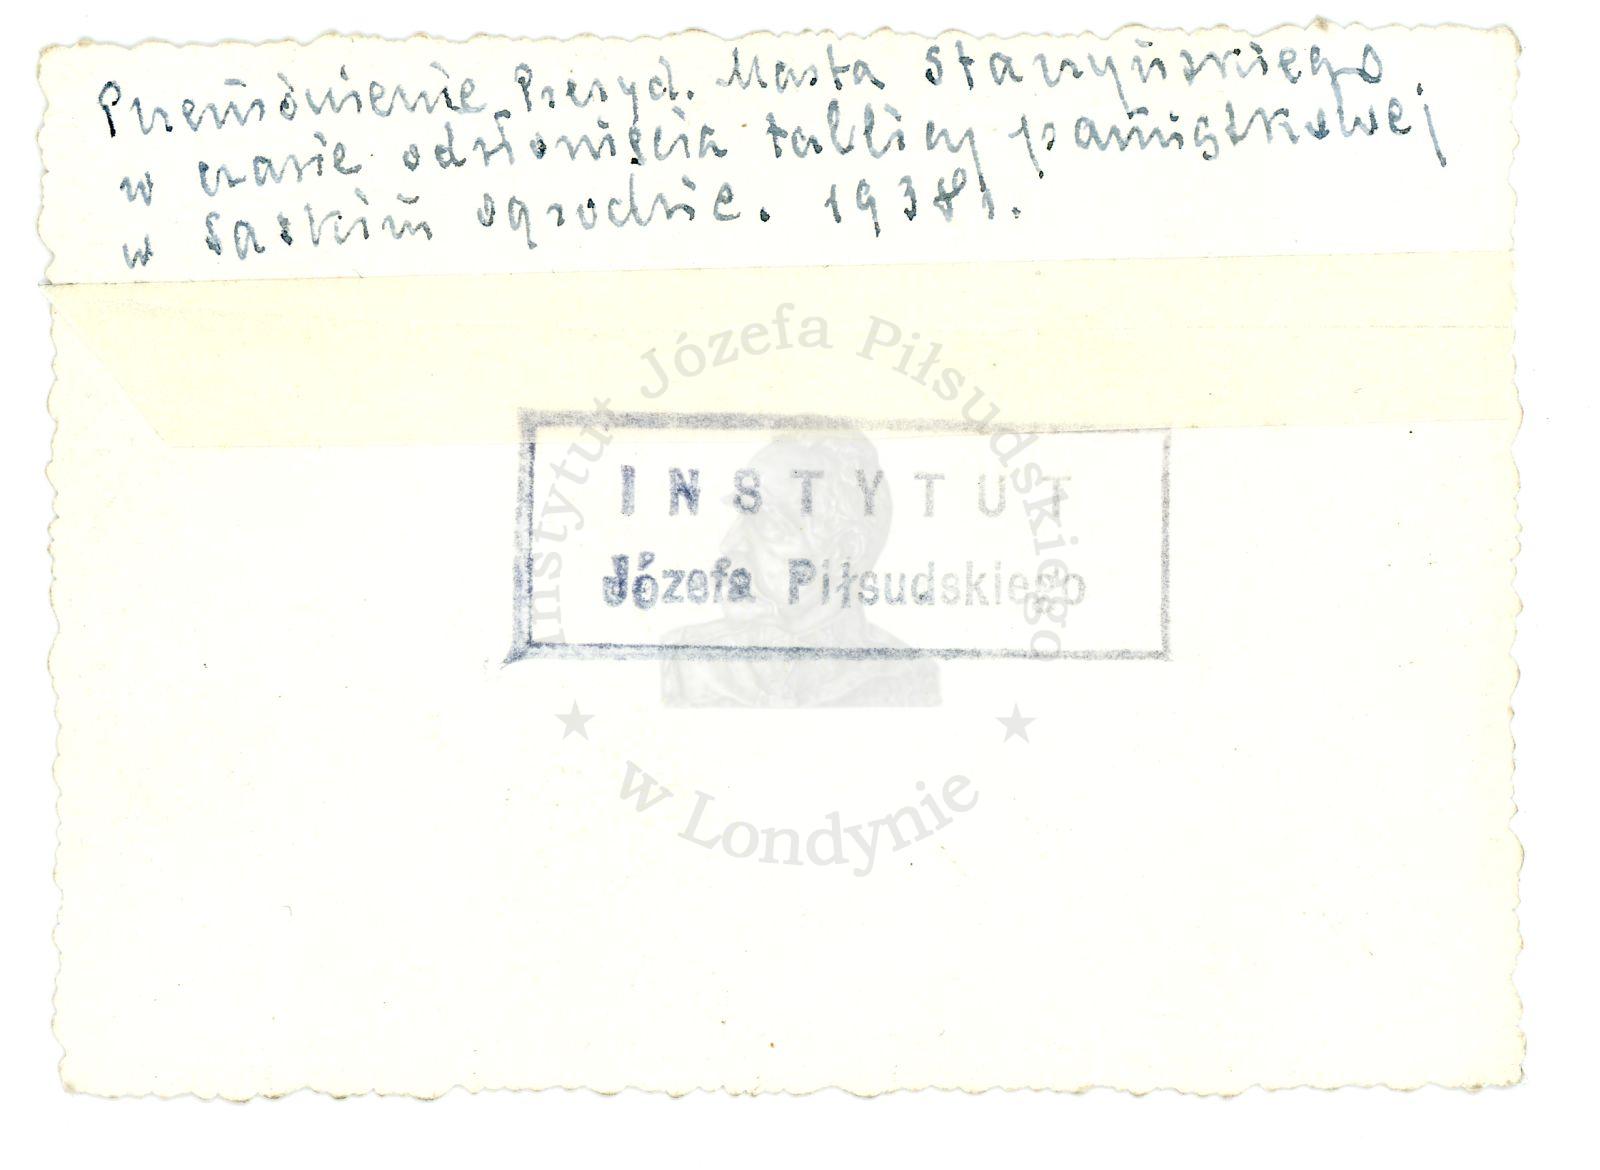 Przemówienie Prezyd. Miasta Starzyńskiego
w czasie odsłonięcia tablicy pamiątkowej
w Saskim ogrodzie. 1938 r.
INSTYTUT
Józefa Piłsudskiego
Instytut Józefa Piłsudskiego
w Londynie